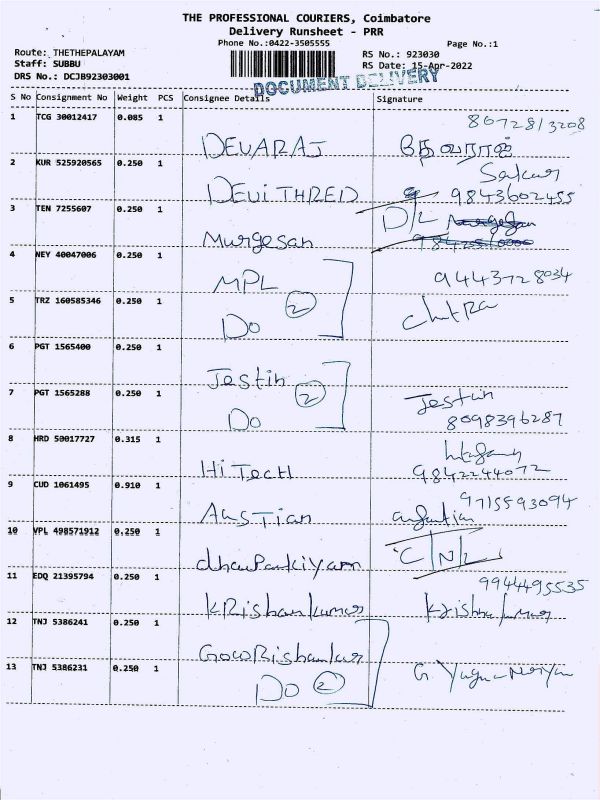 THE PROFESSIONAL COURIERS, Coimbatore
Delivery Runsheet - PRR
Phone No.:0422-3505555
Page No.:1
Route: THETHEPALAYAM
RS No.: 923030
Staff: SUBBU
RS Date: 15-Apr-2022
DRS No.: DCJB92303001
DOCUMENT DELIVERY
S No Consignment No Weight PCS Consignee Details Signature
1 TCG 30012417 0.085 1 8072813208
DEVARAJ தேவராஜ்
2 KUR 525920565 0.250 1
DEVITHRED 9843602455
3 TEN 7255607 0.250 1 D/L
Murgesan
4 NEY 40047006 0.250 1 9443728034
MPL
5 TRZ 160585346 0.250 1 Chitra
Do 2
6 PGT 1565400 0.250 1
Jestin
7 PGT 1565288 0.250 1 Jestin
Do 2 8098396287
8 HRD 50017727 0.315 1
HiTecH 9842244072
9 CUD 1061495 0.910 1 9715593094
AusTian
10 VPL 498571912 0.250 1 C/N/L
dhanPankiyam
11 EDQ 21395794 0.250 1 9944495535
KRishankumar Krishna kumar
12 TNJ 5386241 0.250 1
GowRishankar
13 TNJ 5386231 0.250 1
Do 2